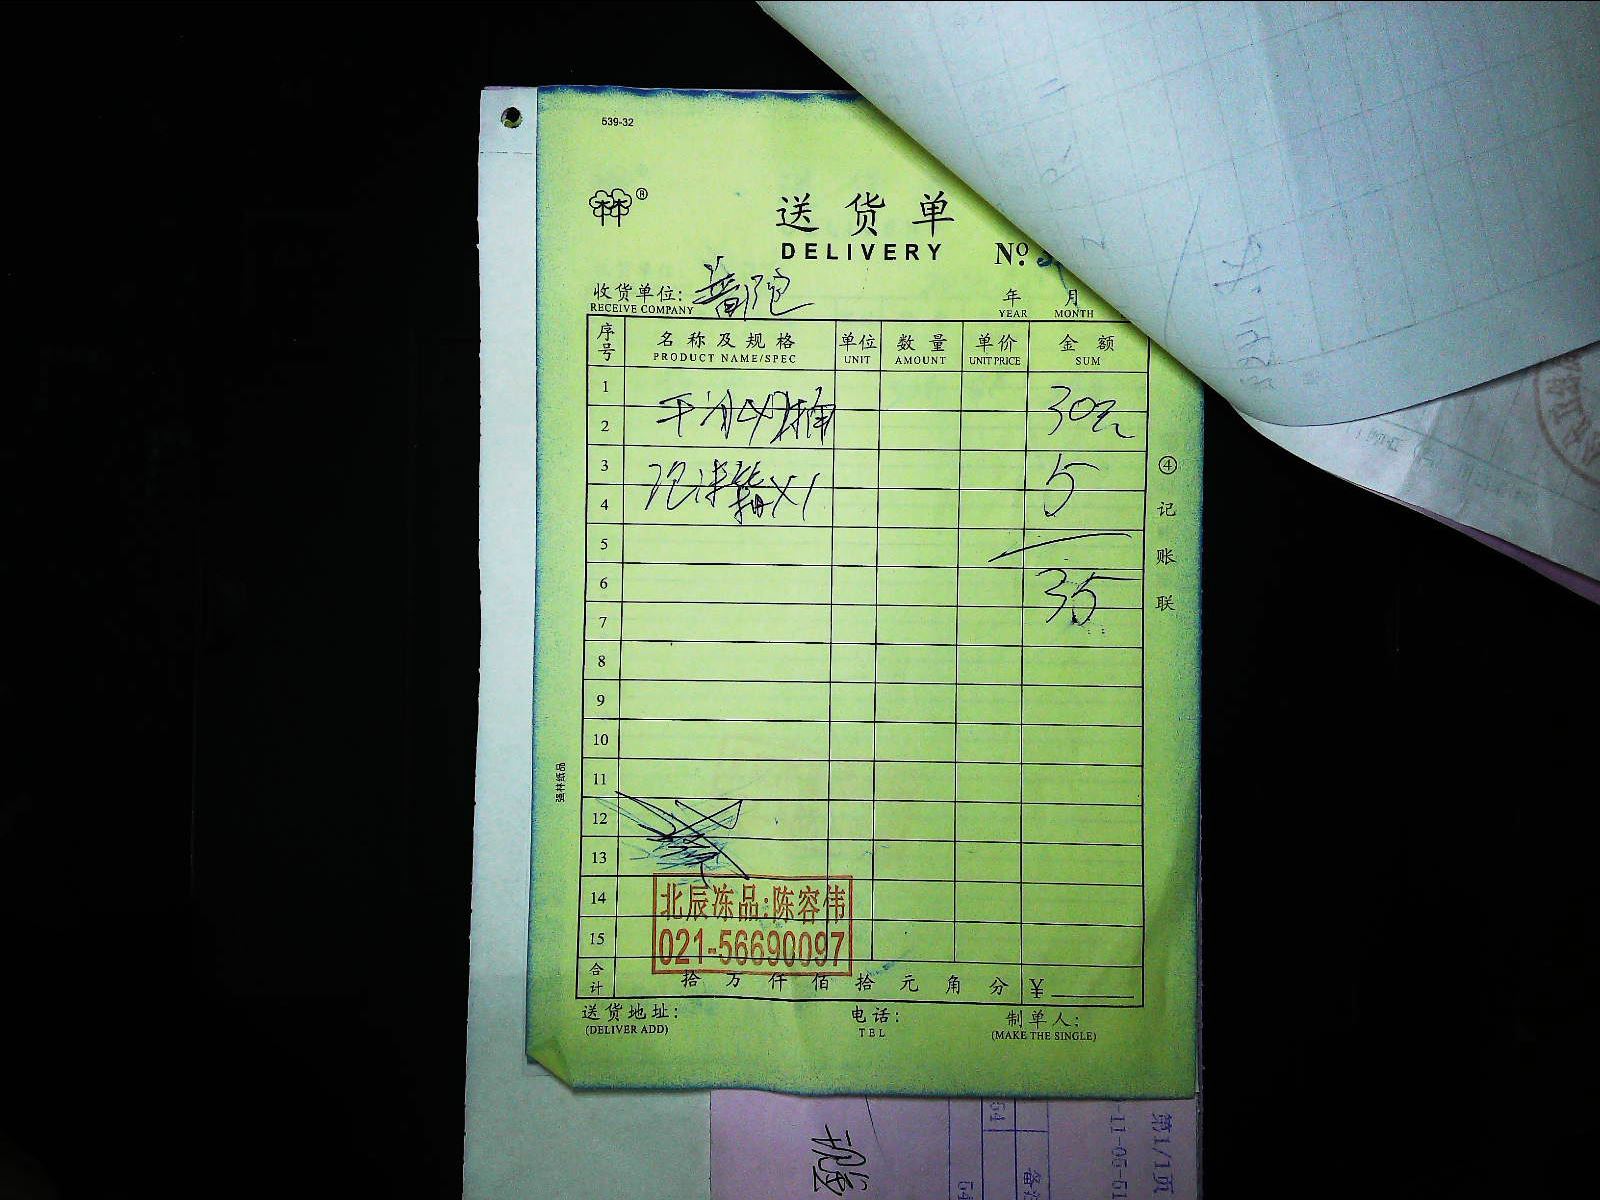 539-32
林®
送货单
DELIVERY Nº.
收货单位: 普陀 年 月
RECEIVE COMPANY YEAR MONTH
序号 名称及规格 单位 数量 单价 金额
PRODUCT NAME/SPEC UNIT AMOUNT UNIT PRICE SUM
1
2 干冰 30元
3
4 泡沫箱X1 5
5
6 35
7
8
9
10
11
12
13
14
15
④记账联
强林纸品
北辰冻品:陈容伟
021-56690097
合计 拾 万 仟 佰 拾 元 角 分 ¥
送货地址: 电话: 制单人:
(DELIVER ADD) TEL (MAKE THE SINGLE)
第1/1页
-11-05-51